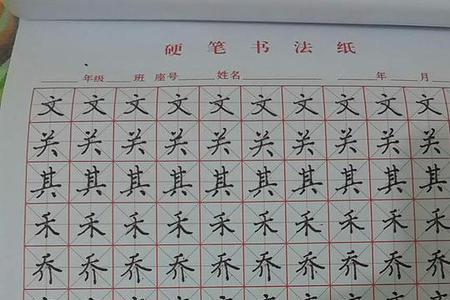 硬笔书法纸
年级 班 座号 姓名 年 月
文文文文文文文文文文
关关关关关关关关关关
其其其其其其其其其其
禾禾禾禾禾禾禾禾禾禾
乔乔乔乔乔乔乔乔乔乔